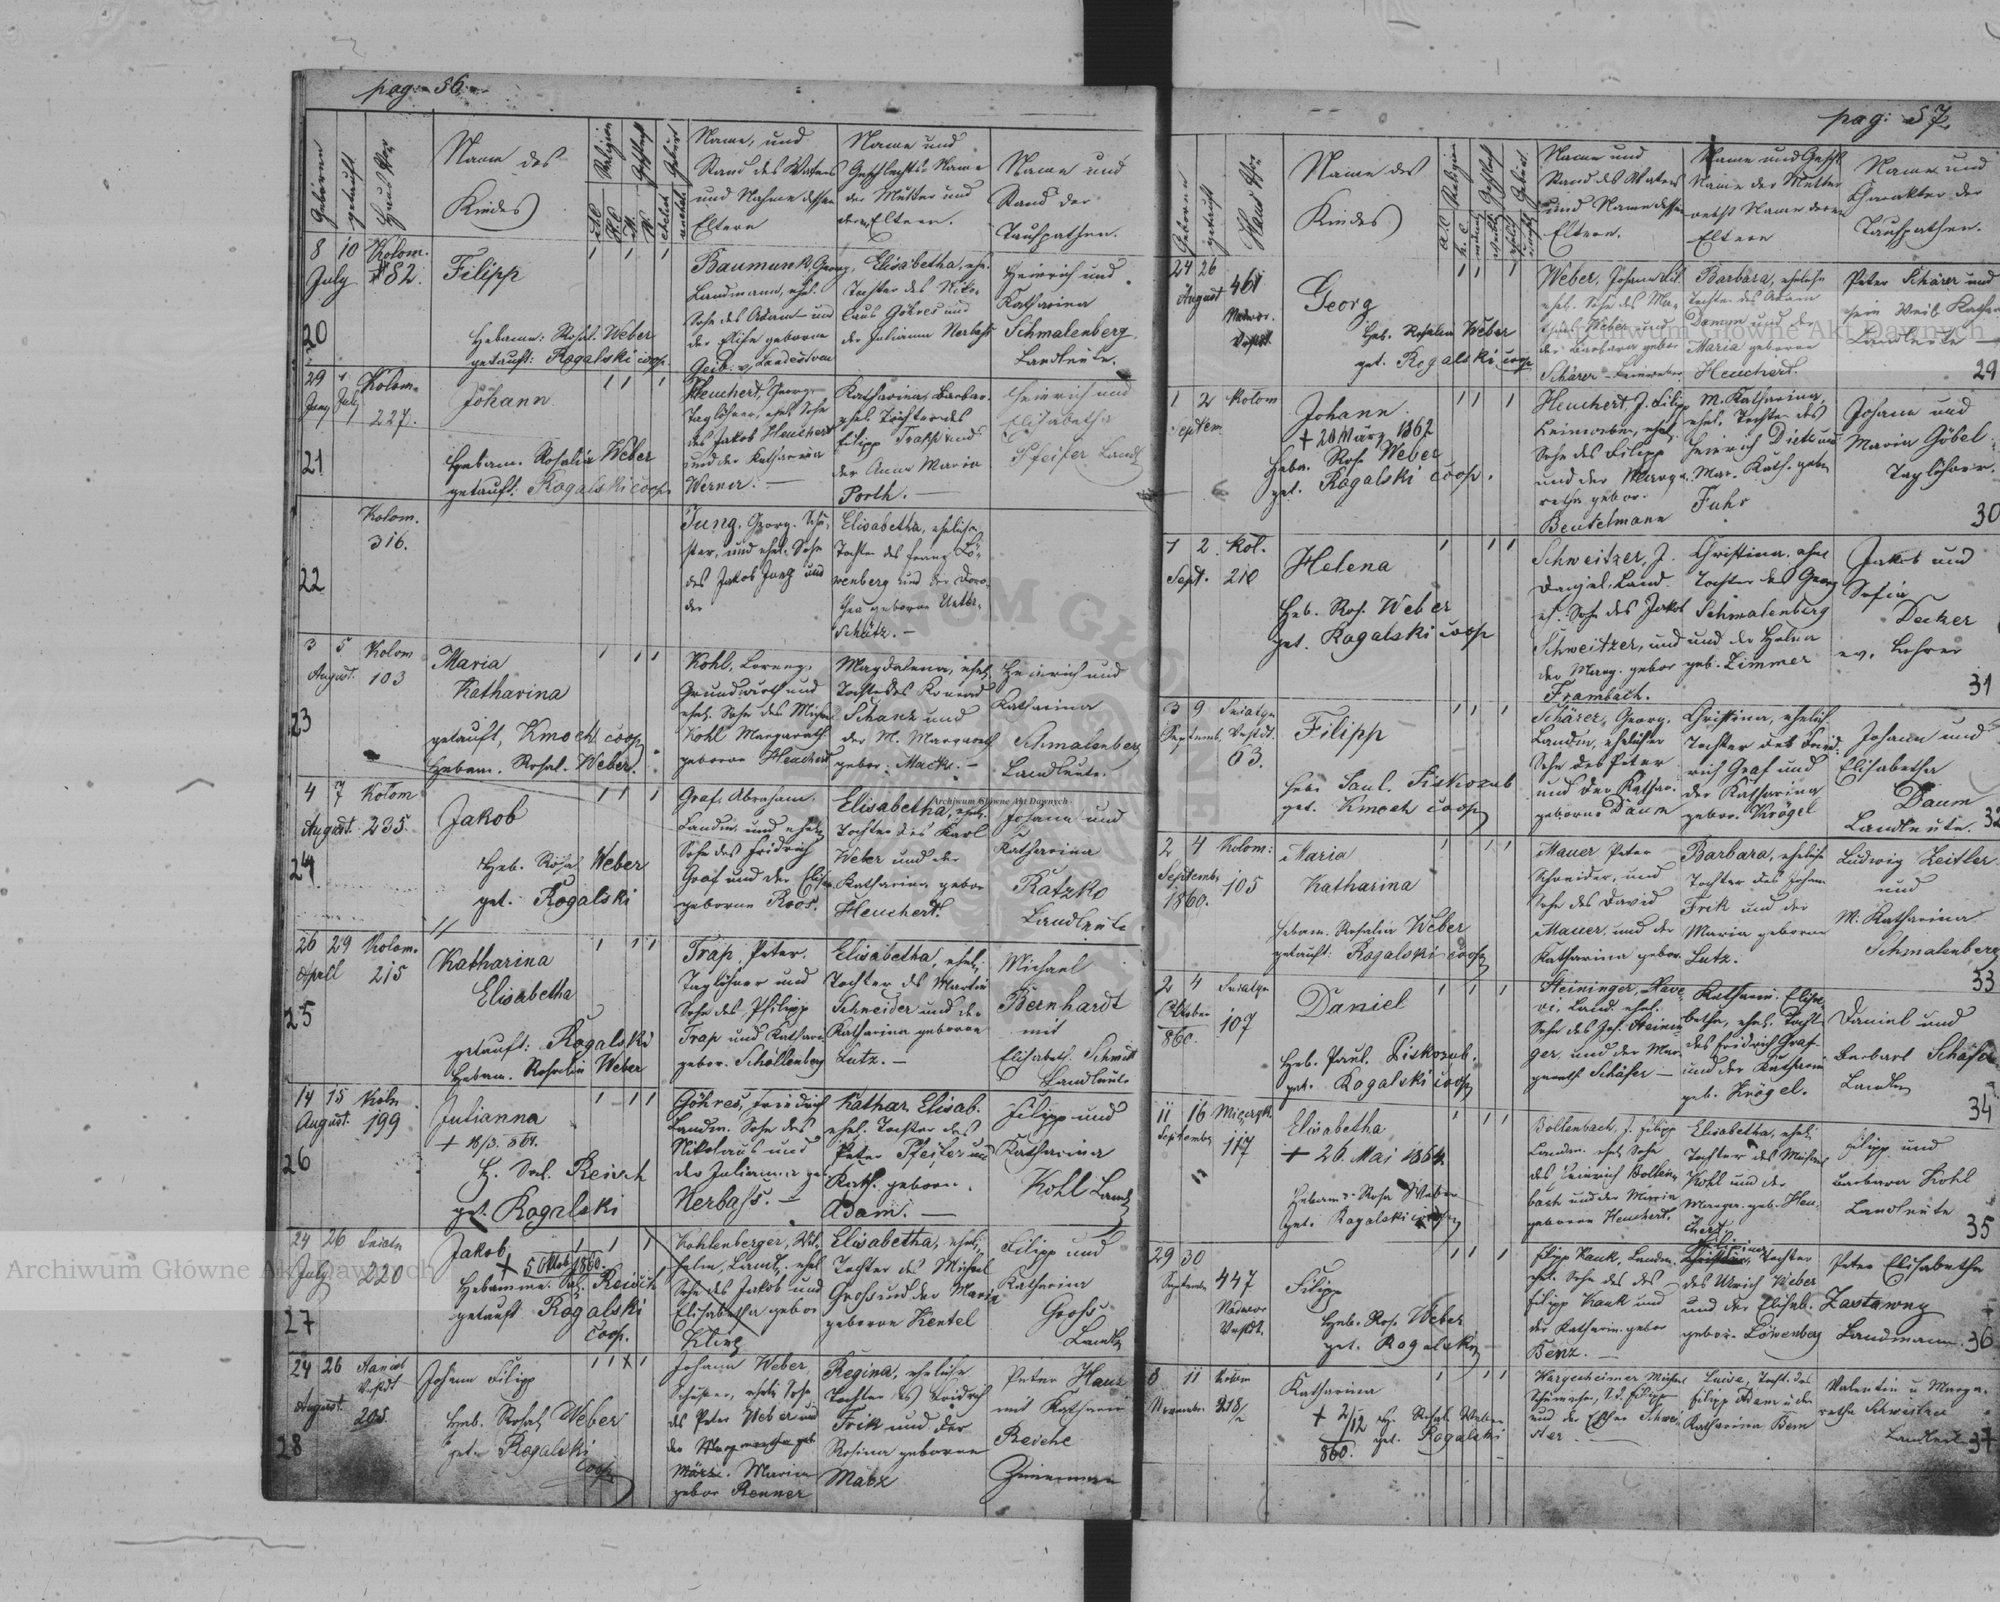 pag: 56.
Geboren
getauft
Haus Nro
Name des
Kindes
Religion
Geschlecht
Geburt
ehelich
unehel
Name, und
Stand des Vaters
und Nahme dessen
Eltern
Name und
Geschlechts Name
der Mutter und
deren Eltern.
Name und
Stand der
Taufpathen.
8 10 Kolom.
July 82.
20
Filipp
Hebame: Rosal. Weber
getauft: Rogalski coop.
Baumunk, Georg,
Landmann, ehel.
Sohn des Adam und
der Elise geborne
Geib
Elisabetha, ehe.
Tochter des Niko-
laus Göhres und
der Julianna Nerbass
Heinrich und
Katharina
Schmalenberg
Landleute.
29 1 Kolom.
Juny July 227.
21
Johann
Hebam. Rosalia Weber
getauft. Rogalski coop.
Heuchert, Georg
Taglöhner, ehel. Sohn
des Jakob Heuchert
und der Katharina
Werner. —
Katharina Barbar.
ehel. Tochter des
Filipp Trapp und
der Anna Maria
Porth. —
Heinrich und
Elisabetha
Pfeifer Landl
Kolom.
316.
22
Jung, Georg. Schu-
ster, und ehel. Sohn
des Jakob Jung und
der
Elisabetha, eheliche
Tochter des Franz Lö-
wenberg und der Doro-
thea geborne Unter-
schütz. —
3 5 Kolom
August. 103
23
Maria
Katharina
getauft, Kmoch coop
Hebam. Rosal. Weber.
Kohl, Lorenz.
Grundwirth und
ehel. Sohn des Michael
Kohl Margareth
geborne Heuchert
Magdalena, ehel.
Tochter des Konrad
Schank und
der M. Margareth
gebor. Mack. —
Heinrich und
Katharina
Schmalenberg
Landleute.
4 7 Kolom
August. 235.
24
Jakob
Heb. Rosal. Weber
get. Rogalski
Graf, Abraham.
Landm. und ehel.
Sohn des Fridrich
Graf und der Elisa
geborne Roos.
Elisabetha, ehel.
Tochter des Karl
Weber und der
Katharina gebor
Heuchert.
Johann und
Katharina
Ratzko
Landleute
26 29 Kolom.
April 215
25
Katharina
Elisabetha
getauft: Rogalski
Hebam. Rosalia Weber
Trap, Peter.
Taglöhner und
Sohn des Philipp
Trap und Kathari
gebor. Schollenberg
Elisabetha, ehel.
Tochter des Martin
Schneider und der
Katharina geborne
Lutz. —
Michael
Bernhardt
mit
Elisabeth. Schmidt
Landleute
14 15 Kolm
August. 199
26
Julianna
+ 18/3. 861.
H. Sal. Reisch
get. Rogalski
Göhres, Friedrich
Landm. Sohn des
Nikolaus und
der Julianna ge
Nerbass. —
Kathar. Elisab.
ehel. Tochter des
Peter Pfeifer und
Kath. geborn.
Adam. —
Filipp und
Katharina
Kohl Landl
24 26 Sniatn
July 220
27
Jakob
+ 5 Oktob 1860.
Hebamme. Sal. Reisch
getauft Rogalski
coop.
Kohlenberger, Wil-
helm, Landl, ehel.
Sohn des Jakob und
Elisabetha gebor
Kling
Elisabetha, ehel.
Tochter des Michael
Gross und der Maria
geborne Hentel
Filipp und
Katharina
Gross
Landl
24 26
August.
205.
28
Johann Filipp
Heb. Rosal. Weber
get. Rogalski
coop
Johann Weber
Schuster, ehel. Sohn
des Peter Weber und
der Margaretha geb
März. Maria
gebor Renner
Regina, eheliche
Tochter des Fridrich
Frik und der
Rosina geborne
März
Peter Haus
mit Katharin
Reiche
Zimmerman
pag: 57.
Geboren
getauft
Haus Nro
Name des
Kindes
Religion
Geschlecht
Geburt
Name und
Stand des Vaters
und Name dessen
Eltern.
Name und Geschl.
Name der Mutter
nebst Name deren
Eltern
Name und
Charakter der
Taufpathen.
24 26
August 461
Georg
Heb. Rosalia Weber
get. Rogalski coop
Weber, Johann
ehel. Sohn des
Weber und
der Barbara gebor
Schärer
Barbara, eheliche
Tochter des Adam
Damm und der
Maria geborne
Heuchert.
Peter Schärer und
sein Weib Kathar
Landleute —
29
1 2 Kolom
Septem
Johann.
+ 20 März 1862
Hebn. Ros. Weber
get. Rogalski coop.
Heuchert, J. Filipp
Leinweber, ehel.
Sohn des Filipp
und der Marga-
retha gebor.
Beutelmann
M. Katharina,
ehel. Tochter des
Heinrich Dietz und
Mar. Kath. gebor
Fuhr
Johann und
Maria Göbel
Taglöhner.
30
1 2. Kol.
Sept. 210
Helena
Heb. Ros. Weber
get. Rogalski coop
Schweitzer, J.
Daniel, Land
eh. Sohn des Jakob
Schweitzer, und
der Marg. gebor
Frambach.
Christina, ehel
Tochter des Georg
Schmalenberg
und der Helena
geb. Zimmer
Jakob und
Sofia
Decker
ev. Lehrer
31
3 9 Sniatyn
Septemb. Vorstdt.
63.
Filipp
Heb. Paul. Piskozub
get. Kmoch coop
Schärer, Georg.
Landm, ehelicher
Sohn des Peter
und der Kathar.
geborne Daum
Christina, ehelich
Tochter des Frid-
rich Graf und
der Katharina
gebor. Krögel
Johann und
Elisabetha
Daum
Landleute.
32
2 4 Kolom:
Septembr 105
1860.
Maria
Katharina
Hebam. Rosalia Weber
getauft: Rogalski coop
Mauer Peter
Schneider, und
Sohn des David
Mauer, und der
Katharina gebor.
Barbara, eheliche
Tochter des Johan
Frik und der
Maria geborne
Lutz.
Ludwig Zeitler
und
M. Katharina
Schmalenberg
33
2 4 Sniatyn
Oktober 107
860.
Daniel
Heb. Paul. Piskozub.
get. Rogalski coop
Steininger, Xave-
ri, Land. ehel.
Sohn des Jos. Steinin
ger und der Mar
gareth Schäfer —
Katharin. Elisa-
betha, ehel. Tocht
des Fridrich Graf
und der Katharin
geb. Krögel.
Daniel und
Barbara Schäfer
Landln
34
11 16
September 117
Elisabetha
+ 26. Mai 1864.
Hebam. Rosa Weber
get. Rogalski coop
Bollenbach, J. Filipp
Landm. ehel. Sohn
des Heinrich Bollen-
bach und der Maria
geborne Heuchert.
Elisabetha, ehel.
Tochter des Michael
Kohl und der
Margar. geb. Heu-
chert.
Filipp und
Barbara Kohl
Landleute
35
29 30
September 447
Filipp
Heb. Ros. Weber
get. Rogalski
Filipp Hauk, Landm.
ehel. Sohn des des
Filipp Hauk und
der Katharin. gebor
Benz. —
Tochter
des Ulrich Weber
und der Elisab.
gebor. Löwenberg
Peter Elisabetha
Zastawny
Landmann.
36
8 11 Kolom
Novembr. 218/
Katharina
+ 2/12
860.
Heb. Rosal. Weber
get. Rogalski
Wargenheimer Michael
Schuma, S. d. Filipp
und der Schwei
Luise, Tocht. des
Filipp Adam u der
Katharina Bem
Valentin u Marga-
retha Schweitzer
Landleute
37
Archiwum Główne Akt Dawnych
Archiwum Główne Akt Dawnych
Archiwum Główne Akt Dawnych